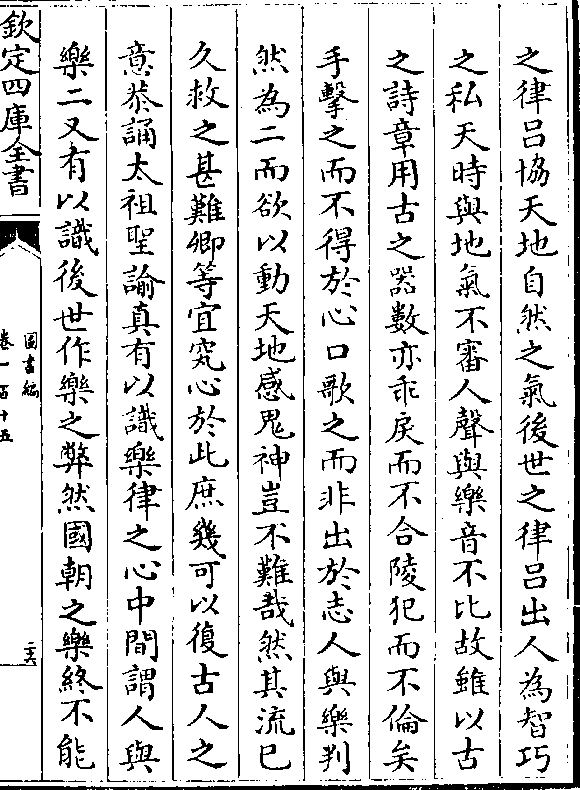 之律呂協天地自然之氣後世之律呂出人為智巧
之私天時與地氣不審人聲與樂音不比故雖以古
之詩章用古之器數亦乖戾而不合陵犯而不倫矣
手擊之而不得於心口歌之而非出於志人與樂判
然為二而欲以動天地感鬼神豈不難哉然其流已
久救之甚難卿等宜究心於此庶幾可以復古人之
意恭誦太祖聖諭真有以識樂律之心中間謂人與
樂二又有以識後世作樂之弊然國朝之樂終不能
欽定四庫全書
圖書編
卷一百十五
二六